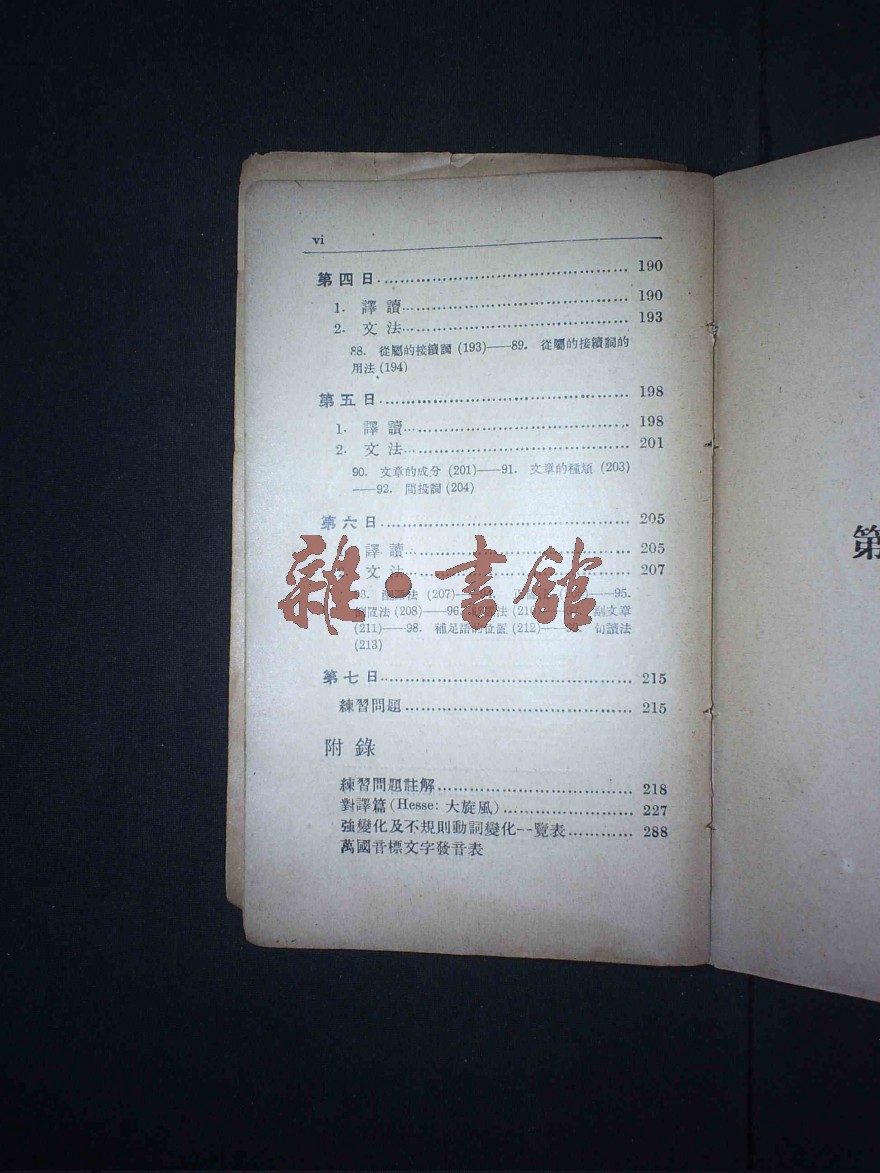 vi
第四日 190
1. 譯讀 190
2. 文法 193
88. 從屬的接續詞 (193)——89. 從屬的接續詞的
用法 (194)
第五日 198
1. 譯讀 198
2. 文法 201
90. 文章的成分 (201)——91. 文章的種類 (203)
——92. 間投詞 (204)
第六日 205
譯讀 205
文法 207
93. 法 (207) 95.
倒置法 (208)——96. 法 (210) 副文章
(211)——98. 補足語的位置 (212) 句讀法
(213)
第七日 215
練習問題 215
附錄
練習問題註解 218
對譯篇 (Hesse: 大旋風) 227
強變化及不規則動詞變化一覽表 288
萬國音標文字發音表
雜·書館
第